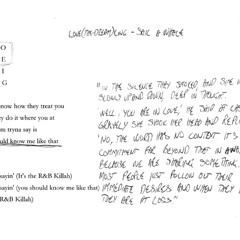 LOVE (THE DREAM) LIKE -
O
E
I
G
"IN THE SILENCE THEY SMOKED AND SHE
SLOWLY UP AND DOWN, DEEP IN THOUGHT.
WELL, YOU ARE IN LOVE, HE SAID AT
GRAVELY SHE SHOOK HER HEAD AND
'NO, THE WORD HAS NO CONTENT. IT'S
COMMITMENT FAR BEYOND THAT IN
BECAUSE WE ARE SHARING SOMETHING.
MOST PEOPLE JUST FOLLOW OUT THEIR
IMMEDIATE DESIRES AND WHEN THEY
THEY ARE AT LOSS"
now how they treat you
ey do it where you at
m tryna say is
uld know me like that
sayin' (It's the R&B Killah)
sayin' (you should know me like that)
R&B Killah)